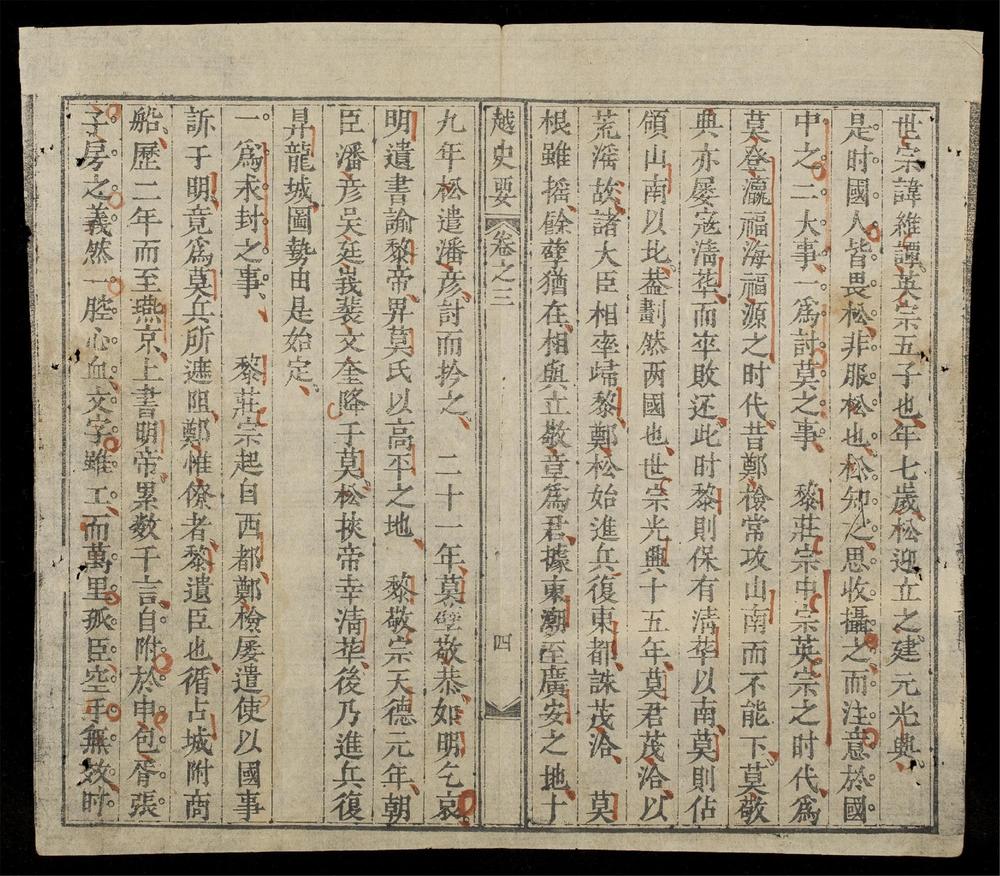 世宗諱維譚英宗五子也年七歲松迎立之建元光興
是时國人皆畏松非服松也松知之思收攝之而注意於國
中之二大事一爲討莫之事　黎莊宗中宗英宗之时代爲
莫登瀛福海福源之时代昔鄭檢常攻山南而不能下莫敬
典亦屡寇清華而卒敗还此时黎則保有清華以南莫則佔
領山南以北葢劃然两國也世宗光興十五年莫君茂洽以
荒滛故諸大臣相率歸黎鄭松始進兵復東都誅茂洽　莫
根雖摇餘孽猶在相與立敬章爲君據東潮至廣安之地十
越史要
卷之二
四
九年松遣潘彦討而擒之　二十一年莫孽敬恭如明乞哀
明遺書諭黎帝畀莫氏以高平之地　黎敬宗天德元年朝
臣潘彦吴廷峩裴文奎降于莫松挾帝幸清華後乃進兵復
昇龍城圖勢由是始定
一爲求封之事　黎莊宗起自西都鄭檢屡遣使以國事
訴于明竟爲莫兵所遮阻鄭惟僚者黎遺臣也循占城附商
船歷二年而至燕京上書明帝累数千言自附於申包胥張
子房之義然一腔心血文字雖工而萬里孤臣空手無效时